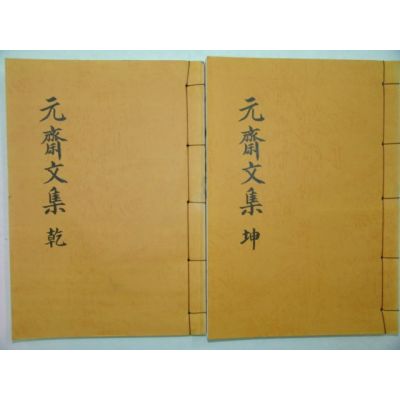 元齋文集 乾
元齋文集 坤